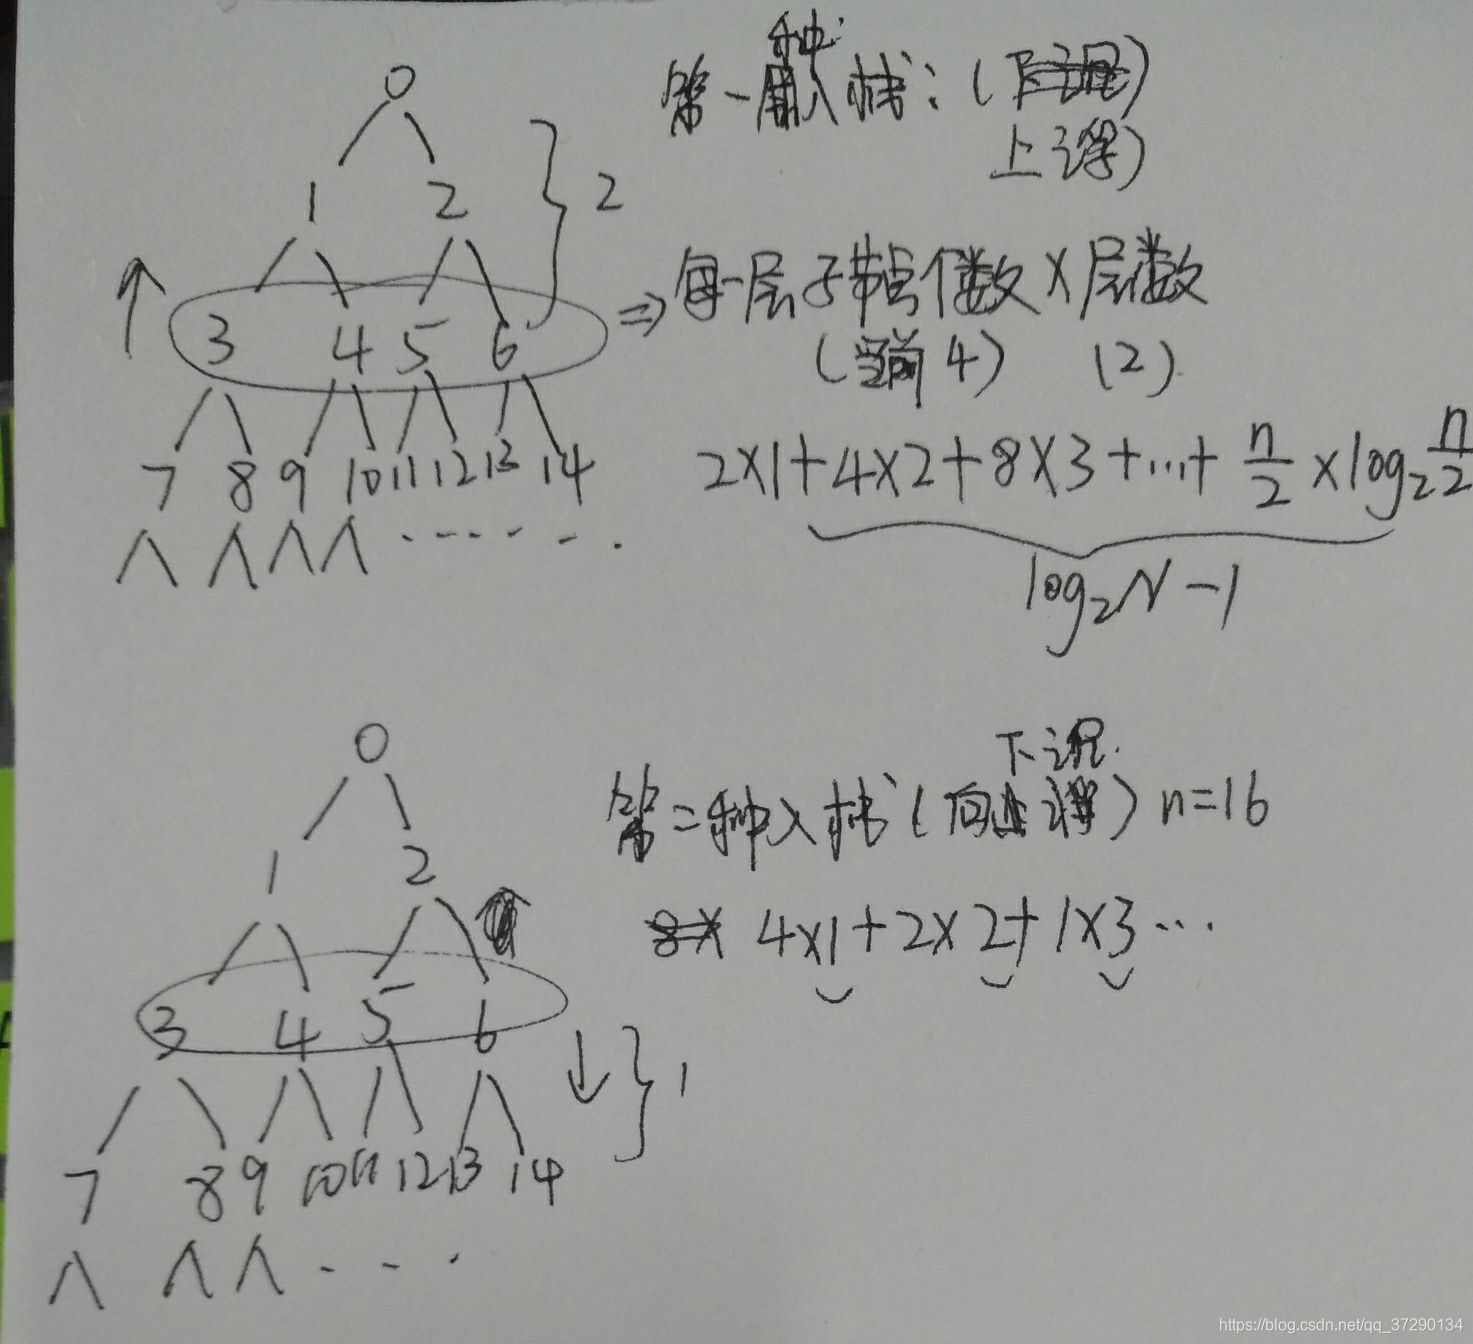 0
第一种入栈:(
上浮)
1 2
2
每一层子节点个数×层数
3 4 5 6
⇒
(当前4) (2)
7 8 9 10 11 12 13 14
2×1+4×2+8×3+...+ n/2 ×log₂ n/2
log₂N-1
0
下沉
第二种入栈( 向 ) n=16
1 2
8× 4×1+2×2+1×3...
3 4 5 6
1
7 8 9 10 11 12 13 14
https://blog.csdn.net/qq_37290134